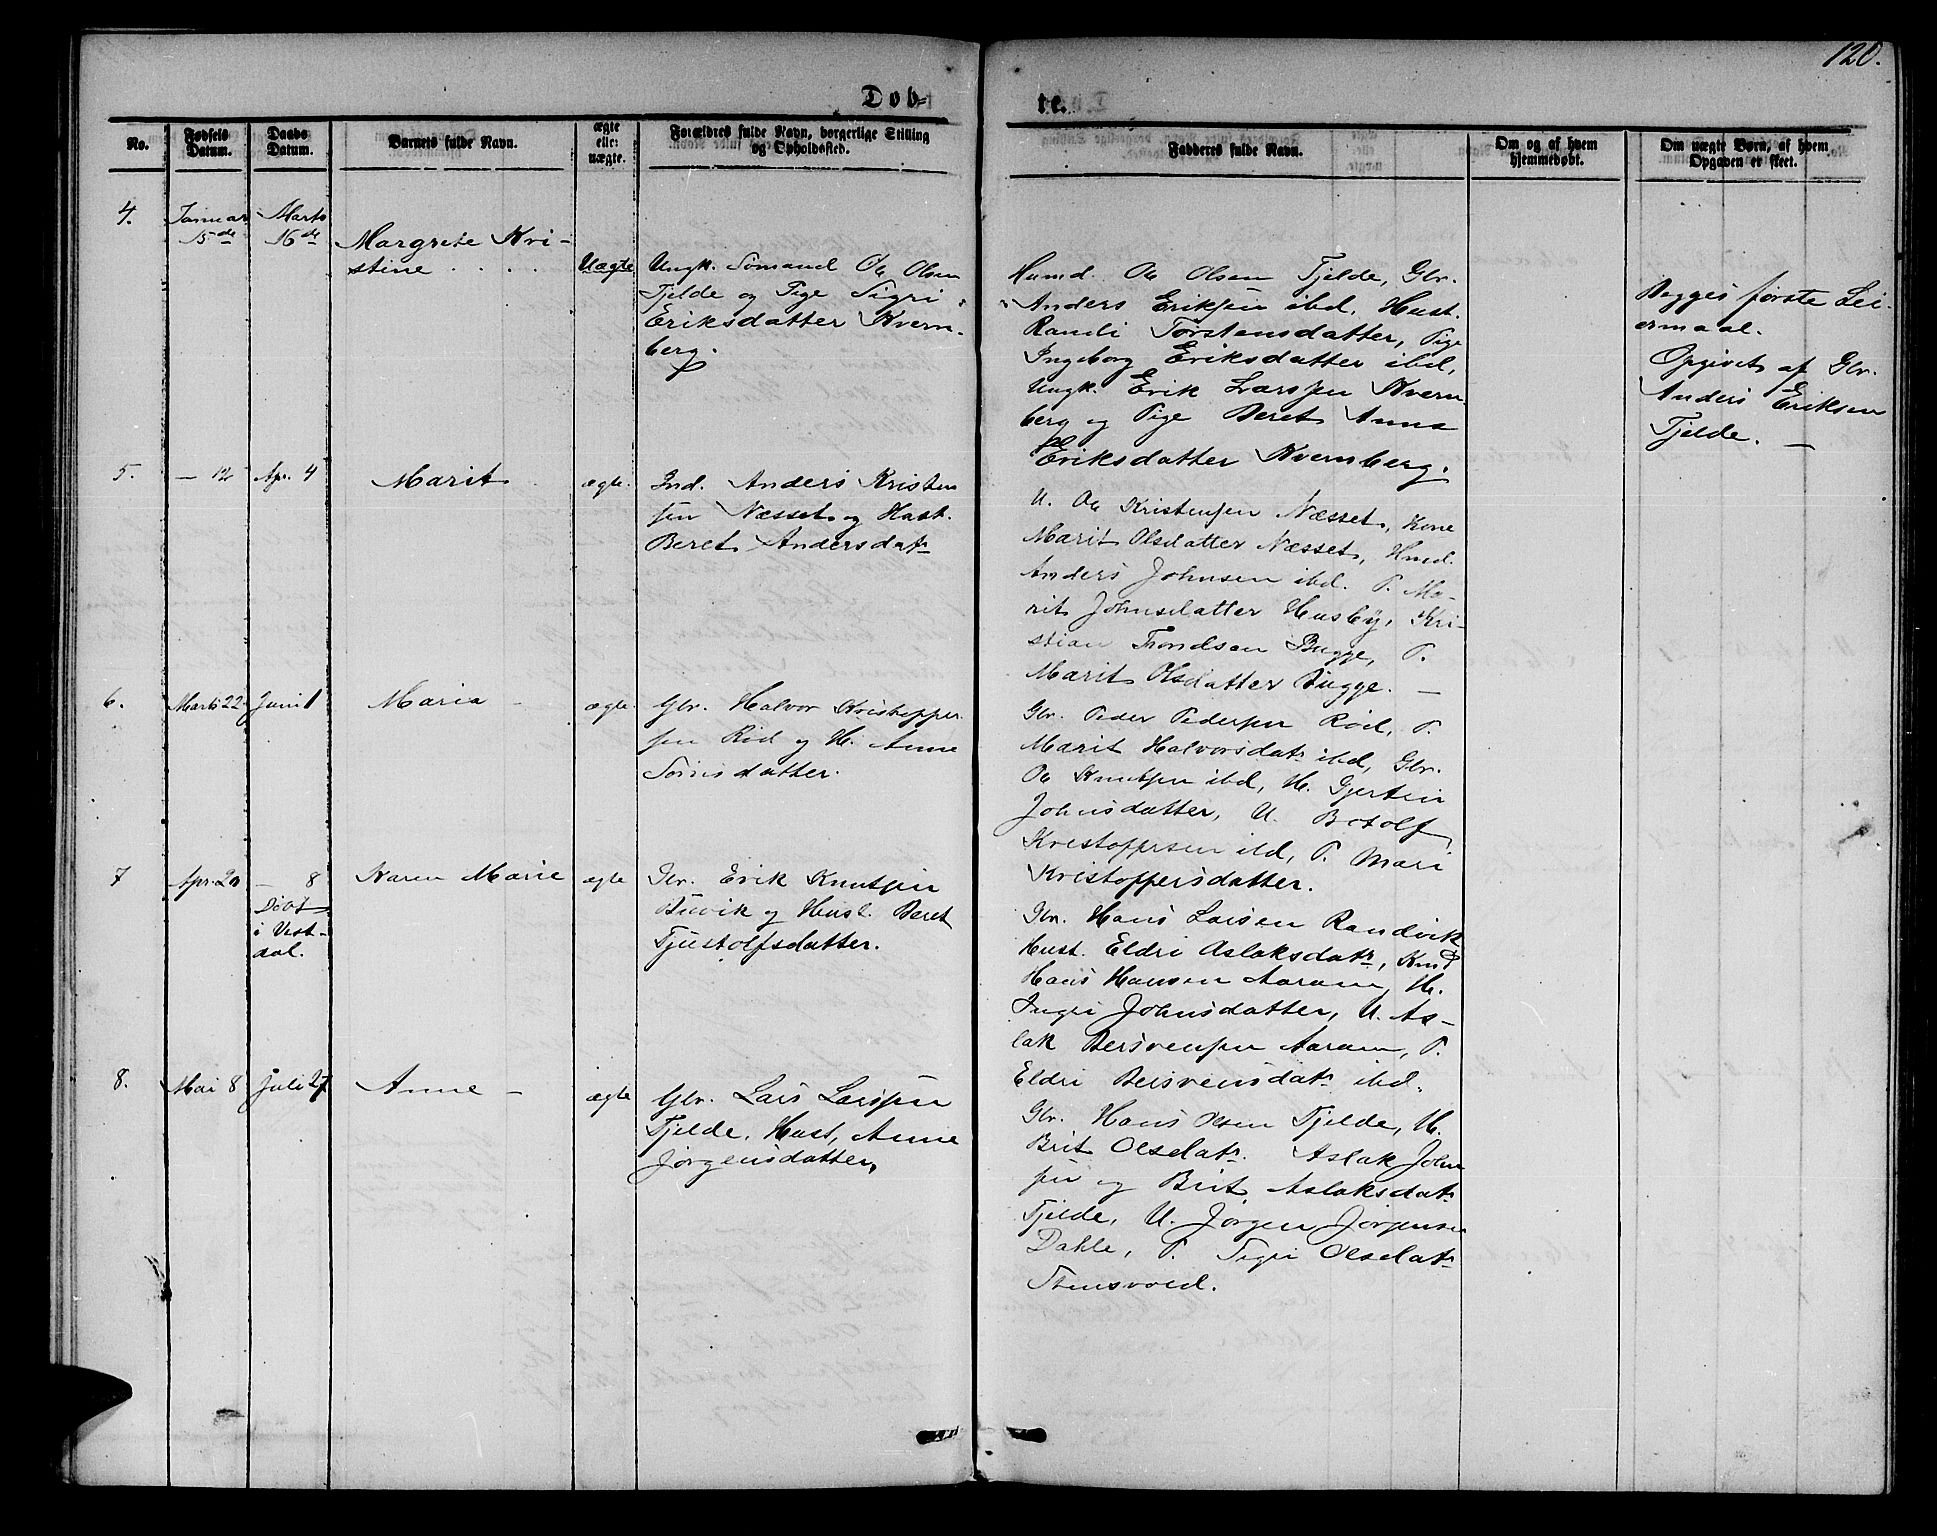 120.
Døb-
te.
No.
Fødsels Datum.
Daabs Datum.
Barnets fulde Navn.
ægte eller uægte.
Forældres fulde Navn, borgerlige Stilling
og Opholdssted.
Fadderes fulde Navn.
Om og af hvem
hjemmedøbt.
Om uægte Børn, af hvem
Opgaven er skeet.
4.
Januar
15de
Marts
16de
Margrete Kri-
stine . . . .
Uægte
Ungk. Sømand Ole Olsen
Tjelde og Pige Sigri
Eriksdatter Kvern-
berg.
Husmd. Ole Olsen Tjelde, Gbr.
Anders Eriksen ibd. Hust.
Randi Torstensdatter, Pige
Ingeborg Eriksdatter ibd,
Ungk. Erik Larssen Kvern-
berg og Pige Beret Anna
Eriksdatter Kvernberg.
Begges første Lei-
ermaal.
Opgivet af Gbr.
Anders Eriksen
Tjelde. —
5.
— 12
Apr. 4
Marit
ægte.
Ind. Anders Kristen
sen Næsset og Hust.
Beret Andersdatr
U. Ole Kristensen Næsset, Kone
Marit Olsdatter Næsset, Husmd.
Anders Johnsen ibd. P. Ma-
rit Johnsdatter Husby, Kri-
stian Trondsen Bugge, P.
Marit Olsdatter Bugge. —
6.
Marts 22
Juni 1
Maria -
ægte.
Gbr. Halvor Kristoffer
sen Rød og H. Anne
Sørisdatter.
Gbr. Peder Pedersen Rød, P.
Marit Halvorsdatr ibd, Gbr.
Ole Knutsen ibd, H. Gjertin
Johnsdatter, U. Botolf
Kristoffersen ibd, P. Mari
Kristoffersdatter.
7
Apr. 20
— 8
Døbt
i Vest-
dal.
Karen Marie
ægte
Gbr. Erik Knutsen
Buvik og Hust. Beret
Tjustolfsdatter.
Gbr. Hans Larsen Randvik
Hust. Eldri Aslaksdatr,
Hans Hansen Aaram, H.
Ingri Johnsdatter, U. As-
lak Bersvensen Aaram, P.
Eldri Bersvensdatr ibd.
8.
Mai 8
Juli 27
Anne -
ægte
Gbr. Lars Larssen
Tjelde. Hust, Anne
Jørgensdatter,
Gbr. Hans Olsen Tjelde, H.
Brit Olsdatr. Aslak John
sen og Brit Aslaksdatr
Tjelde, U. Jørgen Jørgensen
Dahle, P. Sigri Olsdatr
Stensvold.